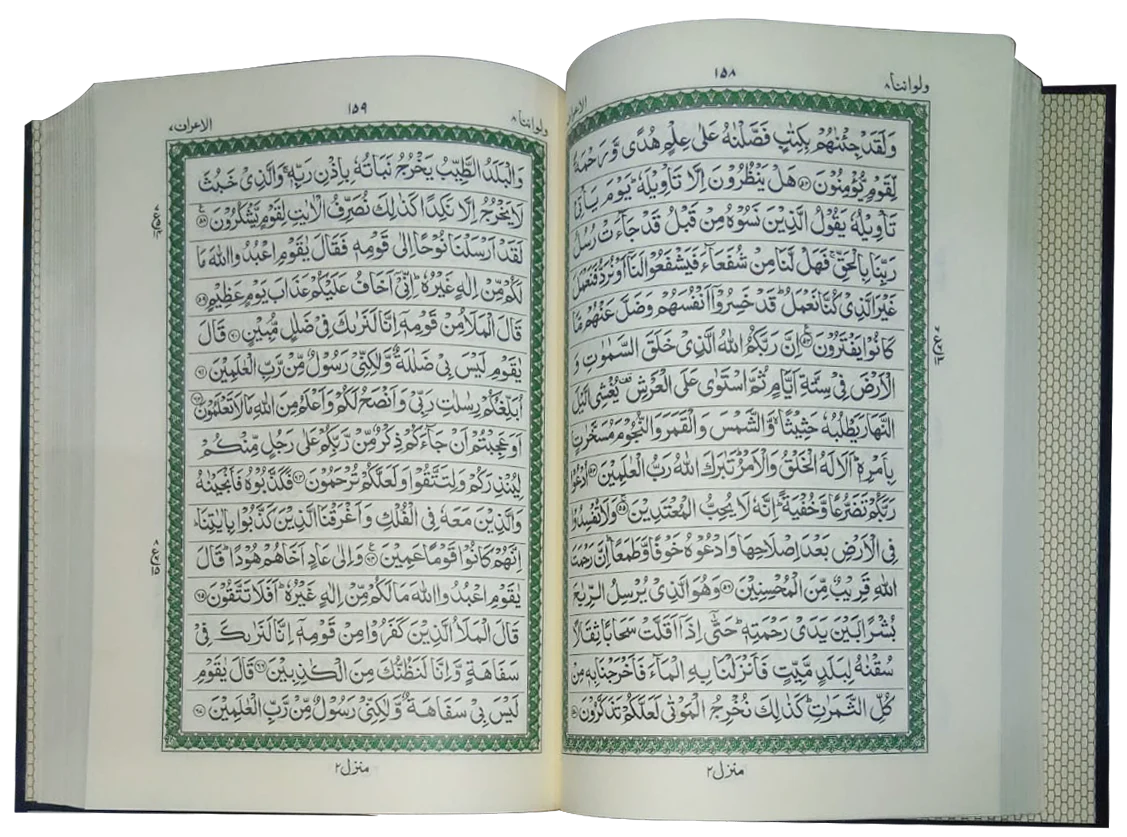 ولواننا ٨
١٥٨
الاعراف
وَلَقَدْ جِئْنٰهُمْ بِكِتٰبٍ فَصَّلْنٰهُ عَلٰى عِلْمٍ هُدًى وَّ رَحْمَةً
لِّقَوْمٍ يُّؤْمِنُوْنَ ﴿٥٢﴾ هَلْ يَنْظُرُوْنَ اِلَّا تَاْوِيْلَهٗ ؕ يَوْمَ يَاْتِيْ
تَاْوِيْلُهٗ يَقُوْلُ الَّذِيْنَ نَسُوْهُ مِنْ قَبْلُ قَدْ جَآءَتْ رُسُلُ
رَبِّنَا بِالْحَقِّ ۚ فَهَلْ لَّنَا مِنْ شُفَعَآءَ فَيَشْفَعُوْا لَنَاۤ اَوْ نُرَدُّ فَنَعْمَلَ
غَيْرَ الَّذِيْ كُنَّا نَعْمَلُ ؕ قَدْ خَسِرُوْۤا اَنْفُسَهُمْ وَضَلَّ عَنْهُمْ مَّا
كَانُوْا يَفْتَرُوْنَ ﴿٥٣﴾ اِنَّ رَبَّكُمُ اللّٰهُ الَّذِيْ خَلَقَ السَّمٰوٰتِ وَ
الْاَرْضَ فِيْ سِتَّةِ اَيَّامٍ ثُمَّ اسْتَوٰى عَلَى الْعَرْشِ ۟ يُغْشِي الَّيْلَ
النَّهَارَ يَطْلُبُهٗ حَثِيْثًا ۙ وَّالشَّمْسَ وَالْقَمَرَ وَالنُّجُوْمَ مُسَخَّرٰتٍ
بِاَمْرِهٖ ؕ اَلَا لَهُ الْخَلْقُ وَالْاَمْرُ ؕ تَبٰرَكَ اللّٰهُ رَبُّ الْعٰلَمِيْنَ ﴿٥٤﴾ اُدْعُوْا
رَبَّكُمْ تَضَرُّعًا وَّخُفْيَةً ؕ اِنَّهٗ لَا يُحِبُّ الْمُعْتَدِيْنَ ﴿٥٥﴾ وَلَا تُفْسِدُوْا
فِي الْاَرْضِ بَعْدَ اِصْلَاحِهَا وَادْعُوْهُ خَوْفًا وَّطَمَعًا ؕ اِنَّ رَحْمَتَ
اللّٰهِ قَرِيْبٌ مِّنَ الْمُحْسِنِيْنَ ﴿٥٦﴾ وَهُوَ الَّذِيْ يُرْسِلُ الرِّيٰحَ
بُشْرًۢا بَيْنَ يَدَيْ رَحْمَتِهٖ ؕ حَتّٰۤى اِذَاۤ اَقَلَّتْ سَحَابًا ثِقَالًا
سُقْنٰهُ لِبَلَدٍ مَّيِّتٍ فَاَنْزَلْنَا بِهِ الْمَآءَ فَاَخْرَجْنَا بِهٖ مِنْ
كُلِّ الثَّمَرٰتِ ؕ كَذٰلِكَ نُخْرِجُ الْمَوْتٰى لَعَلَّكُمْ تَذَكَّرُوْنَ ﴿٥٧﴾
منزل ٢
ولواننا ٨
١٥٩
الاعراف ٧
وَالْبَلَدُ الطَّيِّبُ يَخْرُجُ نَبَاتُهٗ بِاِذْنِ رَبِّهٖ ۚ وَالَّذِيْ خَبُثَ
لَا يَخْرُجُ اِلَّا نَكِدًا ؕ كَذٰلِكَ نُصَرِّفُ الْاٰيٰتِ لِقَوْمٍ يَّشْكُرُوْنَ ﴿٥٨﴾
لَقَدْ اَرْسَلْنَا نُوْحًا اِلٰى قَوْمِهٖ فَقَالَ يٰقَوْمِ اعْبُدُوا اللّٰهَ مَا
لَكُمْ مِّنْ اِلٰهٍ غَيْرُهٗ ؕ اِنِّيْۤ اَخَافُ عَلَيْكُمْ عَذَابَ يَوْمٍ عَظِيْمٍ ﴿٥٩﴾
قَالَ الْمَلَاُ مِنْ قَوْمِهٖۤ اِنَّا لَنَرٰىكَ فِيْ ضَلٰلٍ مُّبِيْنٍ ﴿٦٠﴾ قَالَ
يٰقَوْمِ لَيْسَ بِيْ ضَلٰلَةٌ وَّلٰكِنِّيْ رَسُوْلٌ مِّنْ رَّبِّ الْعٰلَمِيْنَ ﴿٦١﴾
اُبَلِّغُكُمْ رِسٰلٰتِ رَبِّيْ وَاَنْصَحُ لَكُمْ وَاَعْلَمُ مِنَ اللّٰهِ مَا لَا تَعْلَمُوْنَ ﴿٦٢﴾
اَوَعَجِبْتُمْ اَنْ جَآءَكُمْ ذِكْرٌ مِّنْ رَّبِّكُمْ عَلٰى رَجُلٍ مِّنْكُمْ
لِيُنْذِرَكُمْ وَلِتَتَّقُوْا وَلَعَلَّكُمْ تُرْحَمُوْنَ ﴿٦٣﴾ فَكَذَّبُوْهُ فَاَنْجَيْنٰهُ
وَالَّذِيْنَ مَعَهٗ فِي الْفُلْكِ وَاَغْرَقْنَا الَّذِيْنَ كَذَّبُوْا بِاٰيٰتِنَا ؕ
اِنَّهُمْ كَانُوْا قَوْمًا عَمِيْنَ ﴿٦٤﴾ وَاِلٰى عَادٍ اَخَاهُمْ هُوْدًا ؕ قَالَ
يٰقَوْمِ اعْبُدُوا اللّٰهَ مَا لَكُمْ مِّنْ اِلٰهٍ غَيْرُهٗ ؕ اَفَلَا تَتَّقُوْنَ ﴿٦٥﴾
قَالَ الْمَلَاُ الَّذِيْنَ كَفَرُوْا مِنْ قَوْمِهٖۤ اِنَّا لَنَرٰىكَ فِيْ
سَفَاهَةٍ وَّاِنَّا لَنَظُنُّكَ مِنَ الْكٰذِبِيْنَ ﴿٦٦﴾ قَالَ يٰقَوْمِ
لَيْسَ بِيْ سَفَاهَةٌ وَّلٰكِنِّيْ رَسُوْلٌ مِّنْ رَّبِّ الْعٰلَمِيْنَ ﴿٦٧﴾
منزل ٢